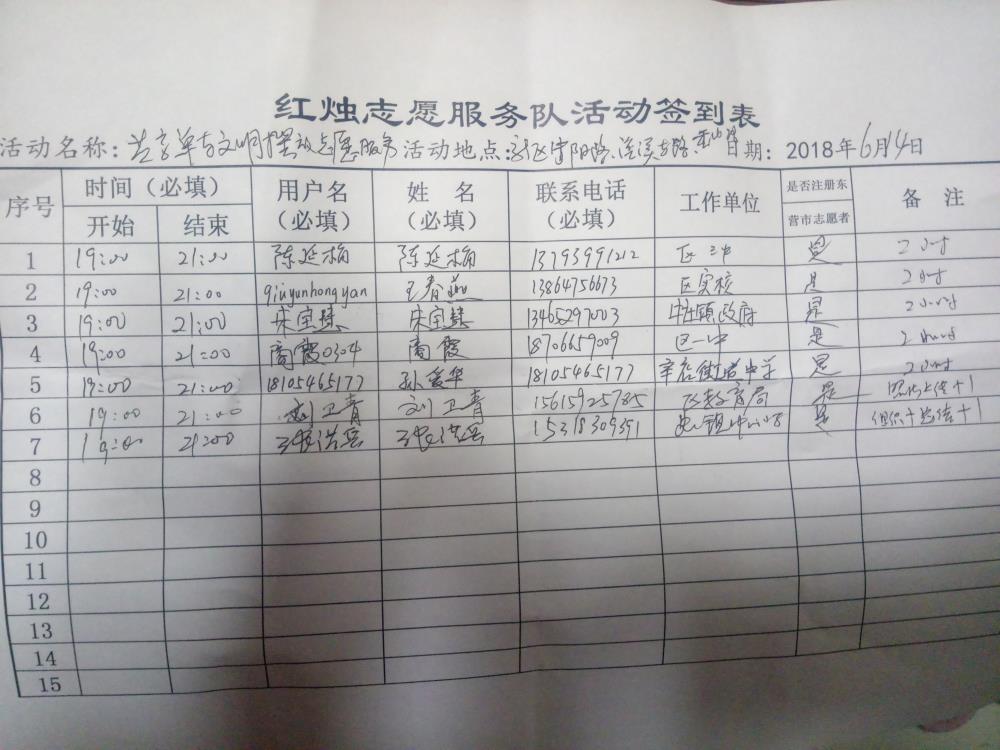 红烛志愿服务队活动签到表
活动名称：共享单车文明摆放志愿服务 活动地点： 日期：2018年6月14日
序号 时间（必填） 用户名（必填） 姓名（必填） 联系电话（必填） 工作单位 是否注册东营市志愿者 备注
开始 结束
1 19:00 21:00 陈延梅 陈延梅 13793991212 区三中 是
2 19:00 21:00 qiuyunhongyan 王春燕 13864756673 区实校 是
3 19:00 21:00 宋宝臻 宋宝臻 13465297003 政府 是
4 19:00 21:00 商霞0304 商霞 18706659009 区一中 是
5 19:00 21:00 18105465177 孙爱华 18105465177 辛店街道中学 是
6 19:00 21:00 刘卫青 刘卫青 15615925785 区教育局 是
7 19:00 21:00 张洪岳 张洪岳 15318309391 是
8
9
10
11
12
13
14
15